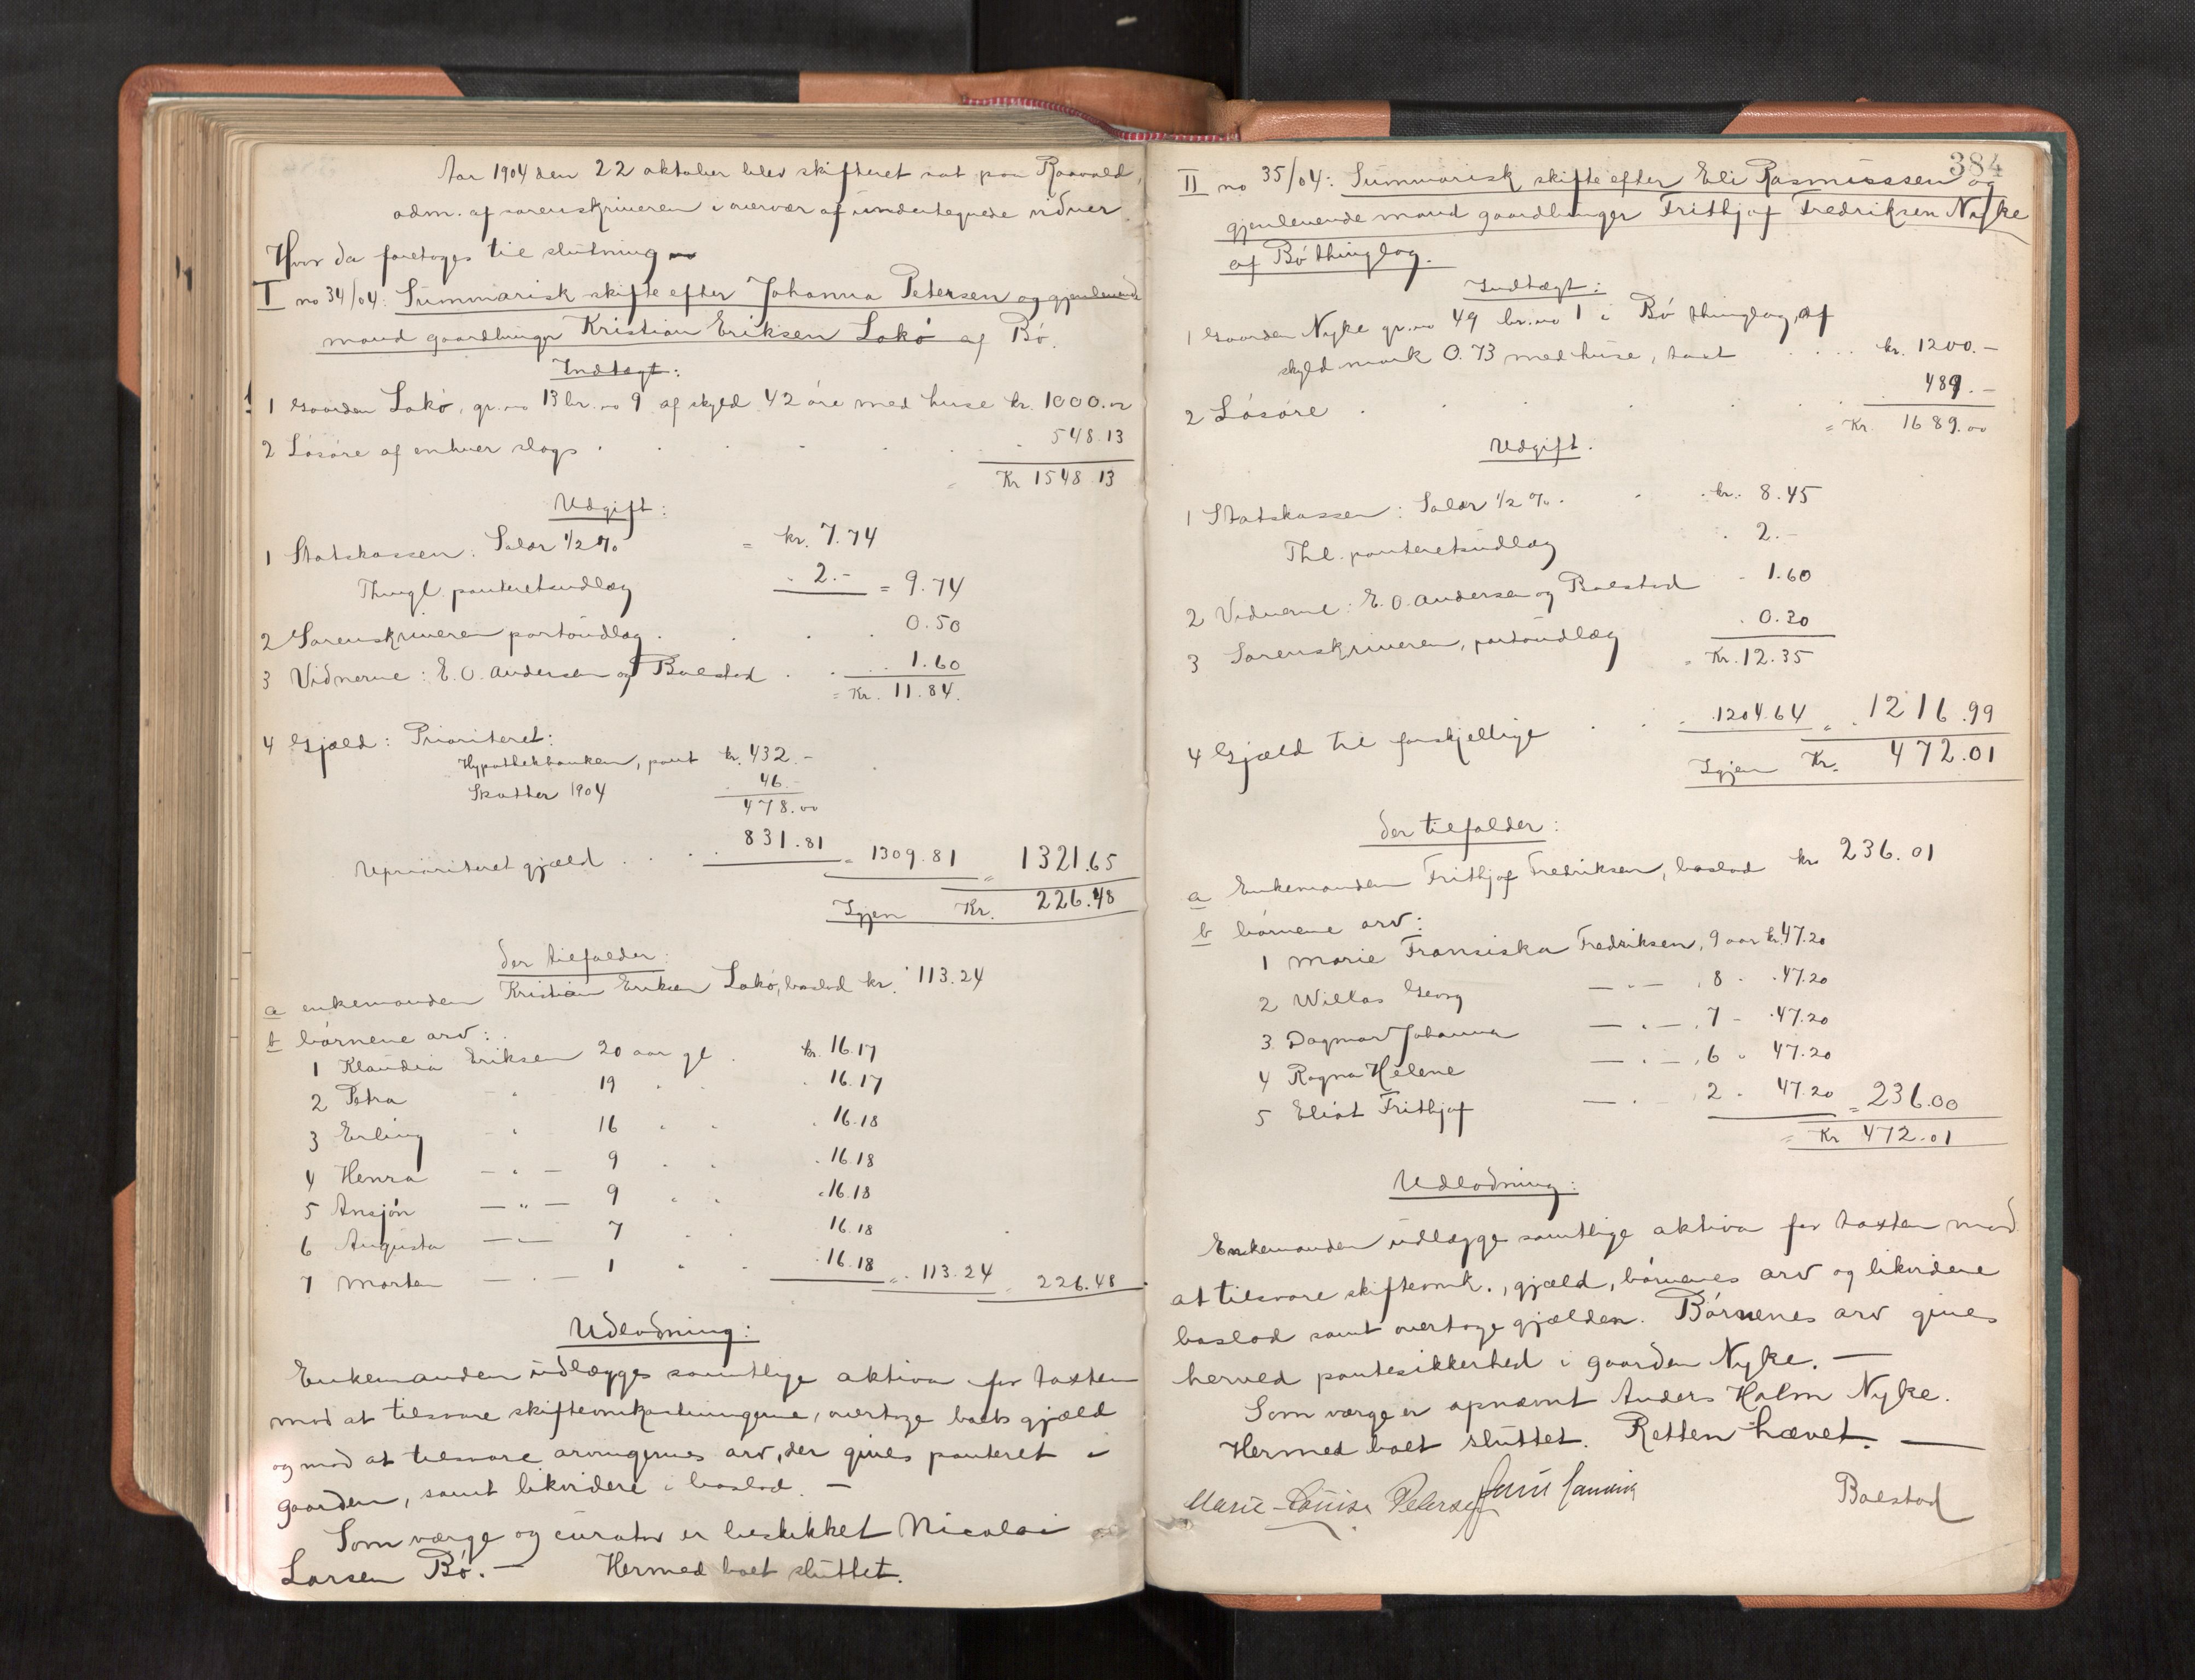 Aar 1904 den 22 oktober blev skifteret sat paa Raavald,
adm. af sorenskriveren i overvær af undertegnede vidner.
Hvor da foretoges til slutning
I no 34/04: Summarisk skifte efter Johanna Petersen og gjenlevende
mand gaardbruger Kristian Eriksen Lokø af Bø.
Indtægt:
1 Gaarden Lokø, gr. no 13 br. no 9 af skyld 42 øre med huse kr. 1000.00
2 Løsøre af enhver slags . . . . . 548.13
= Kr 1548.13
Udgift:
1 Statskassen: Salær 1/2 % = kr. 7.74
Thingl. panteretsudlæg . 2.- = 9.74
2 Sorenskriveren portoudlæg . . . . 0.50
3 Vidnerne: E. O. Andersen og Balstad . . . 1.60
= Kr. 11.84.
4 Gjæld: Prioriteret:
Hypothekbanken, pant kr. 432.-
Skatter 1904 . 46.-
478.00
Uprioriteret gjæld . . . . 831.81 = 1309.81 = 1321.65
Igjen Kr. 226.48
der tilfalder:
a enkemanden Kristian Eriksen Lokø, boslod kr. 113.24
b børnene arv:
1 Klaudia Eriksen 20 aar gl. kr. 16.17
2 Petra " 19 " " . 16.17
3 Erling " 16 " " . 16.18
4 Henra — " — 9 . . . 16.18
5 Ansjøn — " — 9 " " " 16.18
6 Augusta — " — 7 . . 16.18
7 Morten — " — 1 " " . 16.18 = . 113.24 = 226.48
Udlodning:
Enkemanden udlægges samtlige aktiva for taxten
mod at tilsvare skifteomkostningerne, overtage boets gjæld
og mod at tilsvare arvingernes arv, der gives panteret i
gaarden, samt likvidere i boslod. —
Som værge og curator er beskikket Nicolai
Larsen Bø. — Hermed boet sluttet.
384
II no 35/04: Summarisk skifte efter Eli Rasmussen og
gjenlevende mand gaardbruger Frithjof Fredriksen Nyke
af Bø thinglag.
Indtægt:
1 Gaarden Nyke gr. no 49 br. no 1 i Bø thinglag, af
skyld mark 0.73 med huse, taxt . . . . kr. 1200.-
2 Løsøre . . . . . . 489.-
= Kr. 1689.00
Udgift.
1 Statskassen: Salær 1/2 % . . . kr. 8.45
Thl. panteretsudlæg . 2.-
2 Vidnerne: E. O. Andersen og Balstad - 1.60
3 Sorenskriveren, portoudlæg . 0.30
= Kr. 12.35
4 Gjæld til forskjellige . . . 1204.64 = . 1216.99
Igjen Kr. 472.01
der tilfalder:
a Enkemanden Frithjof Fredriksen, boslod kr 236.01
b børnene arv:
1 Marie Fransiska Fredriksen, 9 aar kr. 47.20
2 Willas Georg — " — , 8 - . 47.20
3 Dagmar Johanna — " — , 7 - . 47.20
4 Ragna Helene — " — , 6 " 47.20
5 Eliot Frithjof — " — , 2 " 47.20 = 236.00
= Kr 472.01
Udlodning:
Enkemanden udlægges samtlige aktiva for taxten mod
at tilsvare skifteomk., gjæld, børnenes arv og likvidere
boslod samt overtage gjælden. Børnenes arv gives
herved pantesikkerhed i gaarden Nyke. —
Som værge er opnævnt Anders Holm Nyke.
Hermed boet sluttet. Retten hævet. —
Marie-Louise Petersen Balstad